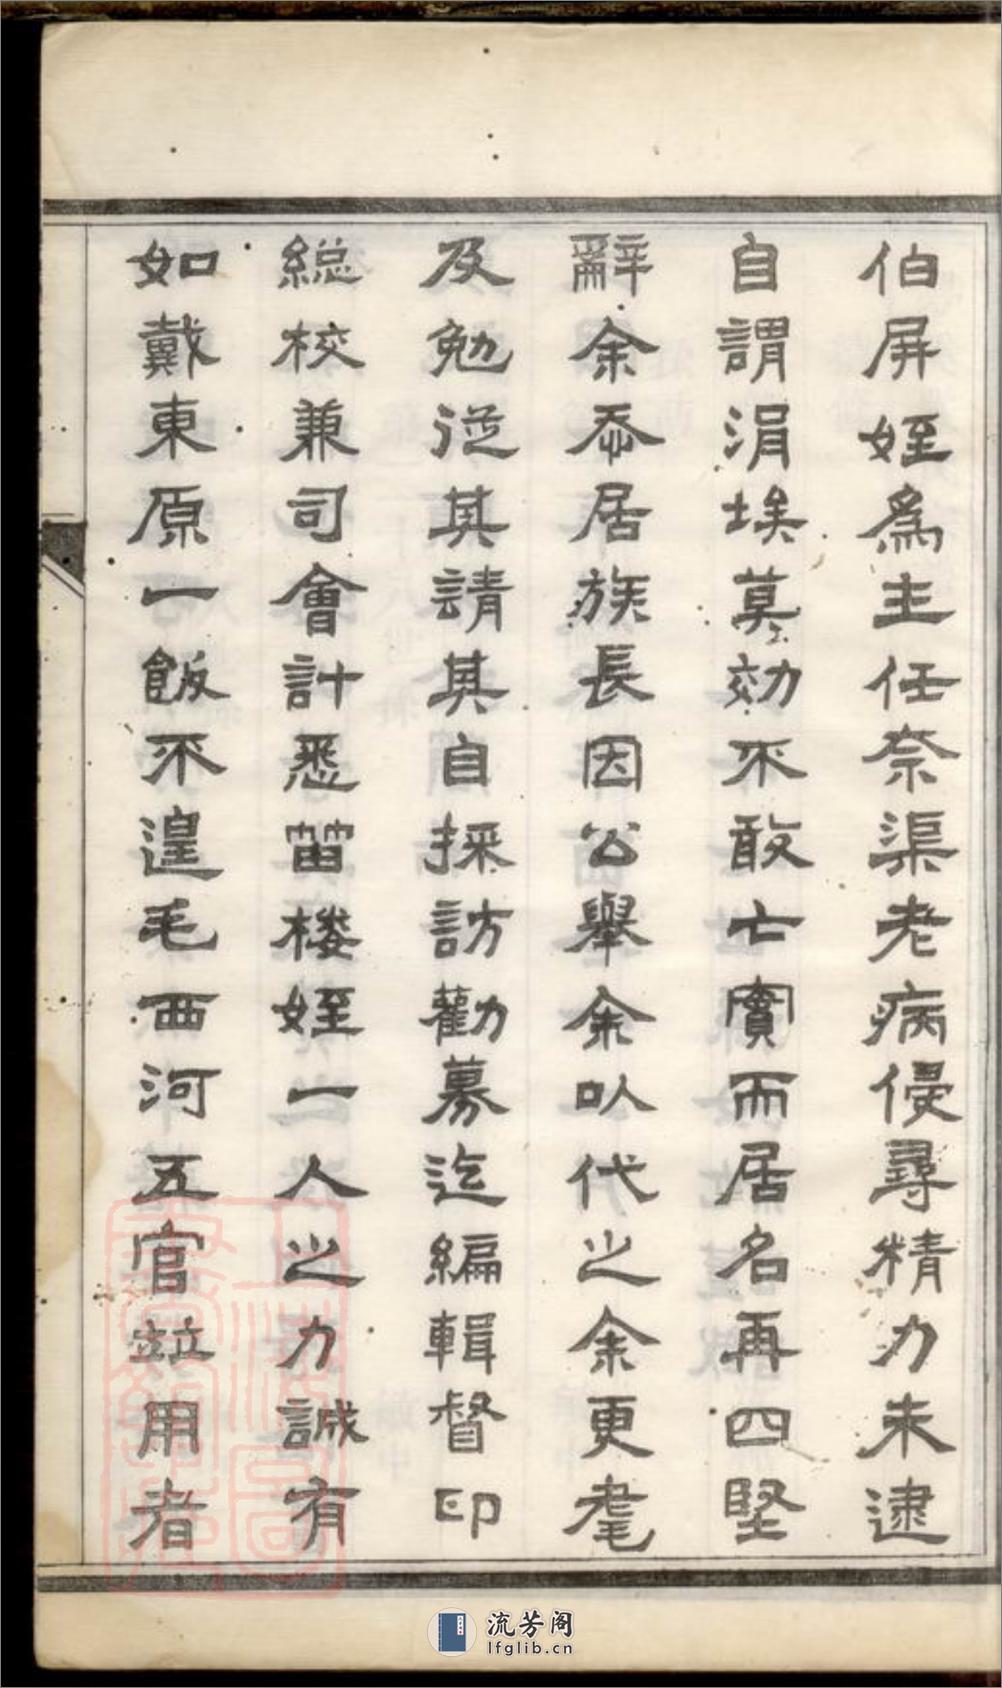 伯屏姪為主任奈渠老病侵尋精力未逮
自謂涓埃莫効不敢亡實而居名再四堅
辭余忝居族長因公舉余以代之余更耄
及勉從其請其自採訪勸募迄編輯督印
総校兼司會計悉笛楼姪一人之力誠有
如戴東原一飯不遑毛西河五官竝用者
流芳阁
lfglib.cn